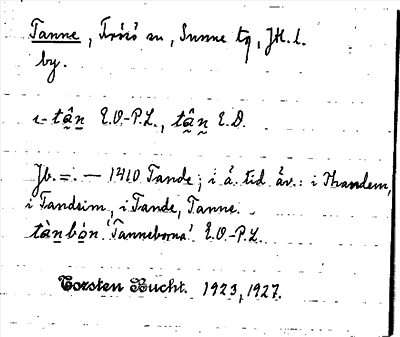 Tanne, Frösö sn, Sunne tg, Jtl. l.
by.
i- tâ̰n̰ E.O.-P.L., tâ̰n̰ E.D.
Jb. = . — 1410 Tande; i ä. tid äv.: i Thandem,
i Tandeim, i Tande, Tanne.
tànbòn 'Tanneborna' E.O.-P.L.
Torsten Bucht. 1923, 1927.